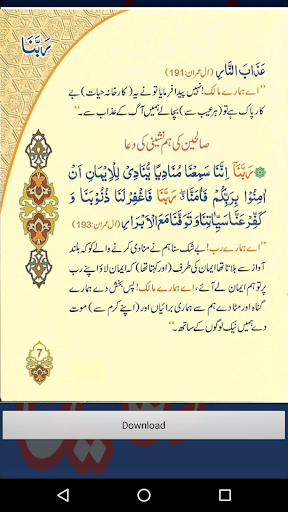 رَبَّنَا
عَذَابَ النَّارِ (اٰل عمران: 191)
”اے ہمارے مالک! نہیں پیدا فرمایا تو نے یہ (کارخانہ حیات) بے
کار پاک ہے تو (ہر عیب سے) بچالے ہمیں آگ کے عذاب سے۔“
صالحین کی ہم نشینی کی دعا
رَبَّنَآ اِنَّنَا سَمِعْنَا مُنَادِيًا يُّنَادِيْ لِلْاِيْمَانِ اَنْ
اٰمِنُوْا بِرَبِّكُمْ فَاٰمَنَّا ۖ رَبَّنَا فَاغْفِرْ لَنَا ذُنُوْبَنَا وَ
كَفِّرْ عَنَّا سَيِّاٰتِنَا وَتَوَفَّنَا مَعَ الْاَبْرَارِ (اٰل عمران: 193)
”اے ہمارے رب! بے شک سنا ہم نے منادی کرنے والے کو کہ بلند
آواز سے بلاتا تھا ایمان کی طرف (اور کہتا تھا) کہ ایمان لاؤ اپنے رب
پر تو ہم ایمان لے آئے، اے ہمارے مالک! پس بخش دے ہمارے
گناہ اور مٹا دے ہم سے ہماری برائیاں اور (اپنے کرم سے) موت
دے ہمیں نیک لوگوں کے ساتھ۔“
7
Download